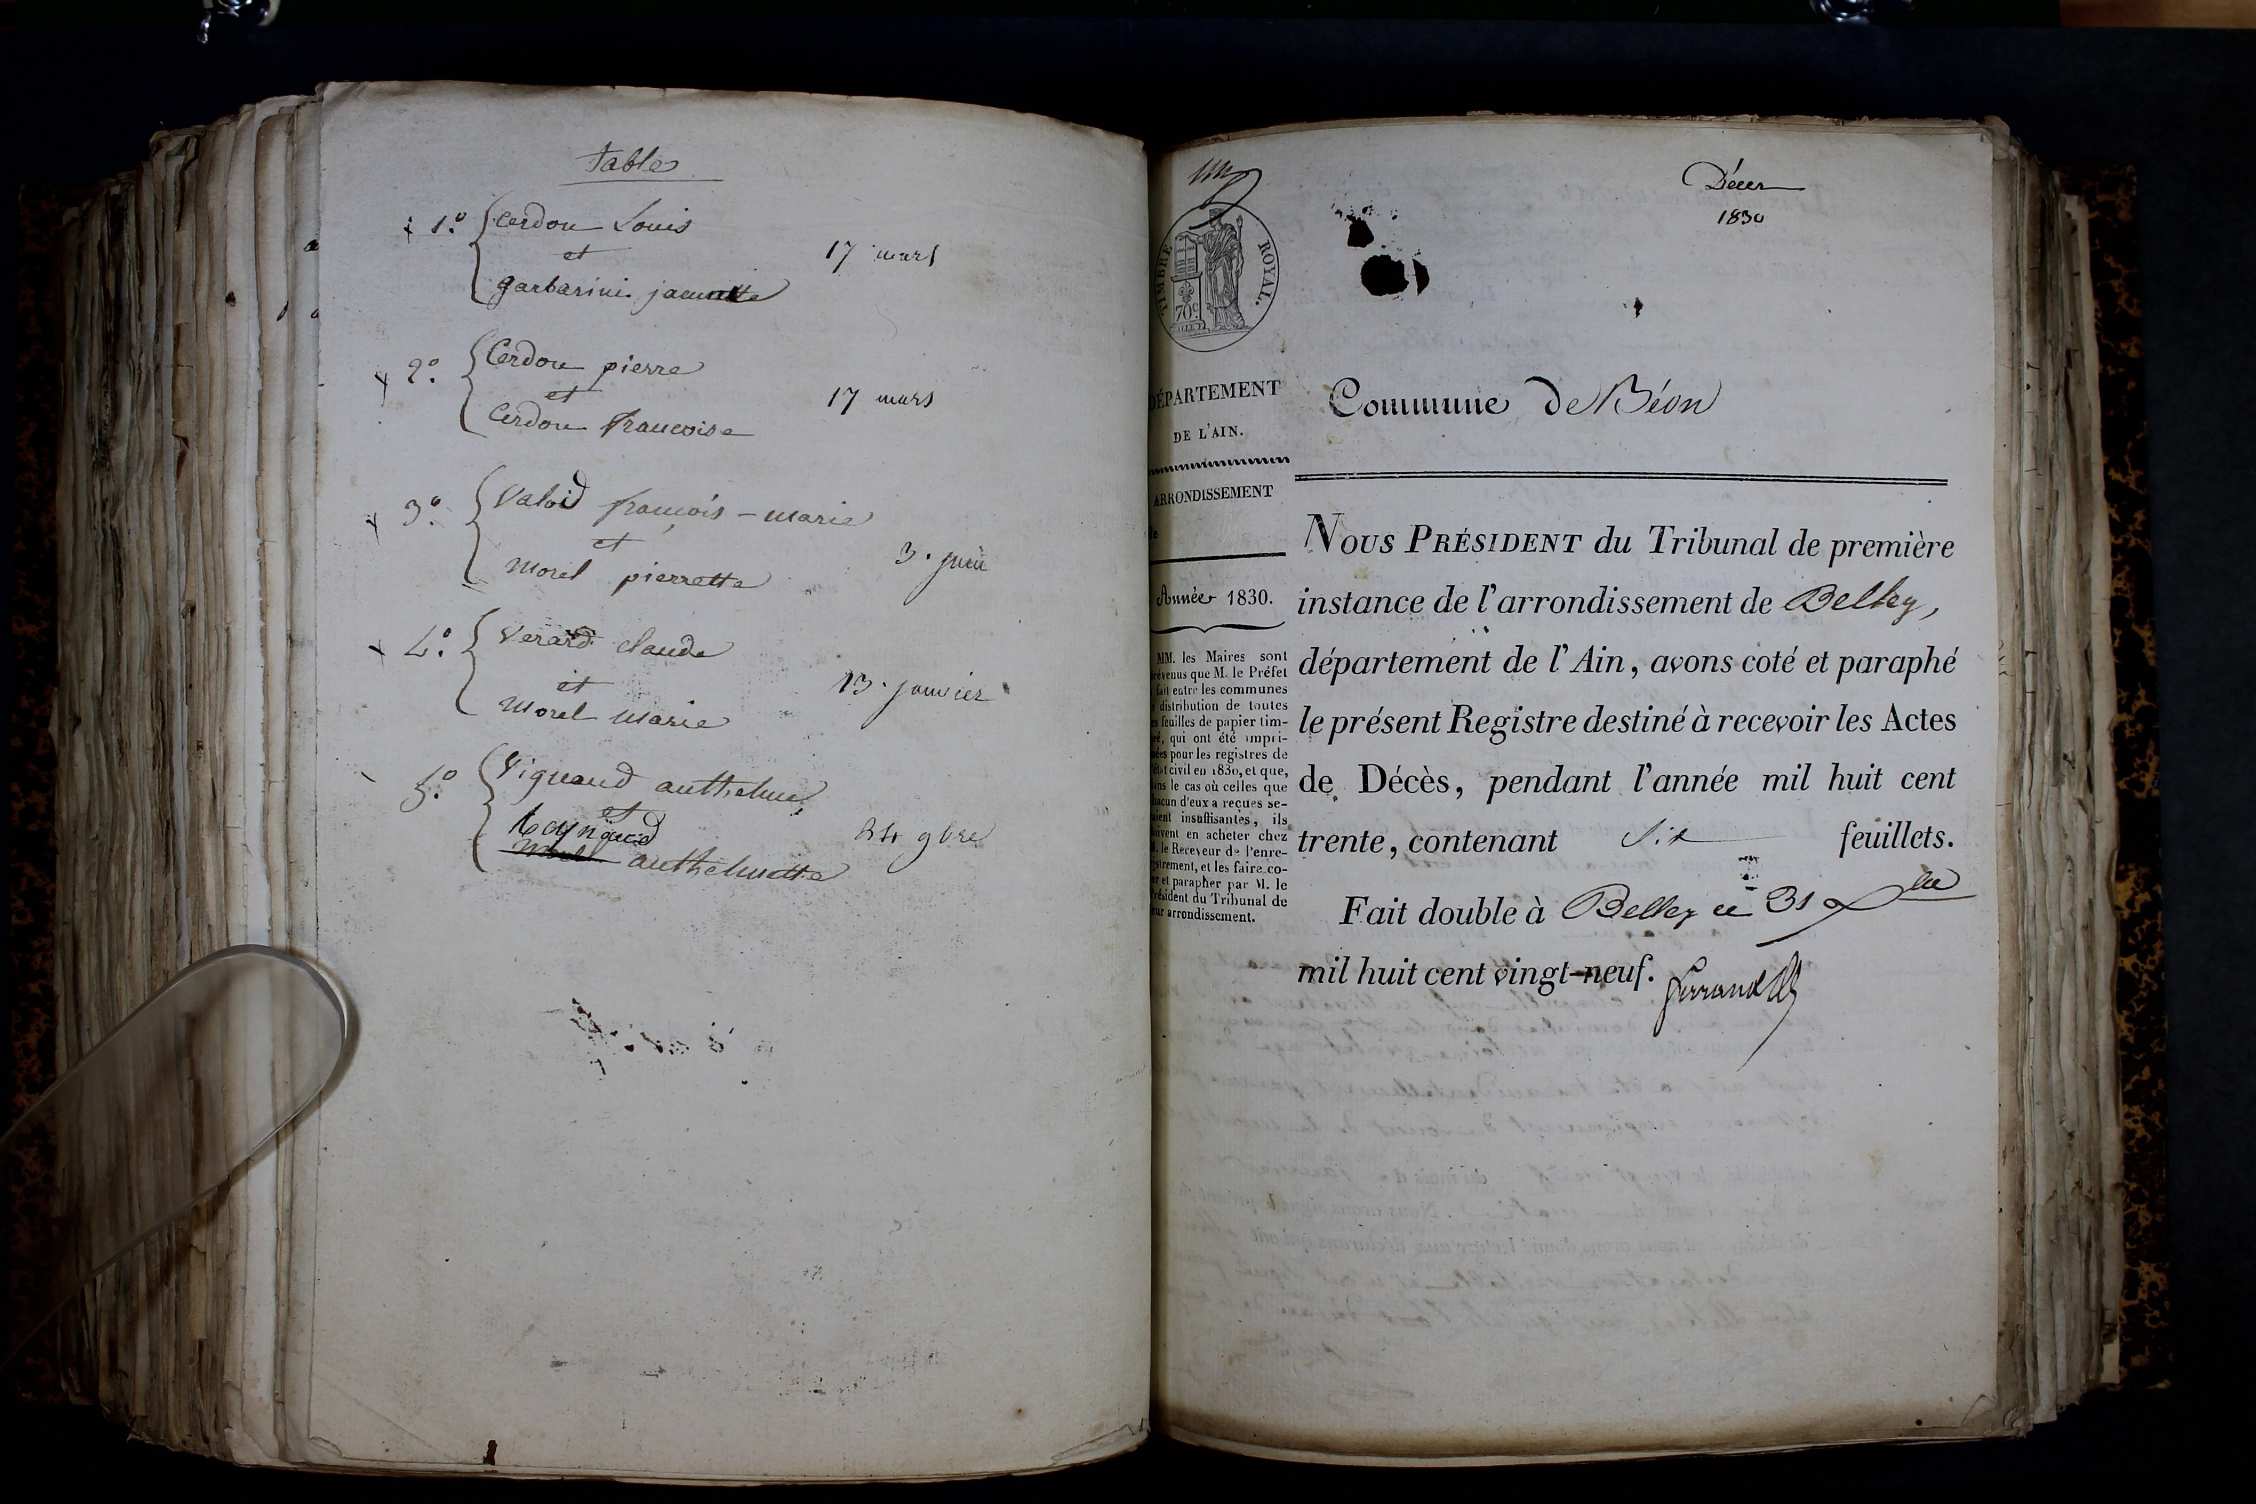 Table
1.° Cerdon Louis
et
garbarini jacquette
17 mars
2.° Cerdon pierre
et
Cerdon francoise
17 mars
3.° Valoid françois - marie
et
morel pierrette
3. juin
4.° Verard claude
et
morel marie
13. janvier
5.° Vignaud anthelme
et
Reynaud
anthelmette
24 9bre
Décès
1830
TIMBRE ROYAL.
70c
DÉPARTEMENT
DE L'AIN.
ARRONDISSEMENT
de
Année 1830.
MM. les Maires sont
prévenus que M. le Préfet
a fait entre les communes
la distribution de toutes
les feuilles de papier tim-
bré, qui ont été impri-
mées pour les registres de
l'état civil en 1830, et que,
dans le cas où celles que
chacun d'eux a reçues se-
raient insuffisantes, ils
doivent en acheter chez
M. le Receveur de l'enre-
gistrement, et les faire co-
ter et parapher par M. le
Président du Tribunal de
leur arrondissement.
Commune de Béon
NOUS PRÉSIDENT du Tribunal de première
instance de l'arrondissement de Belley,
département de l'Ain, avons coté et paraphé
le présent Registre destiné à recevoir les Actes
de Décès, pendant l'année mil huit cent
trente, contenant Six feuillets.
Fait double à Belley ce 31 Xbre
mil huit cent vingt-neuf.